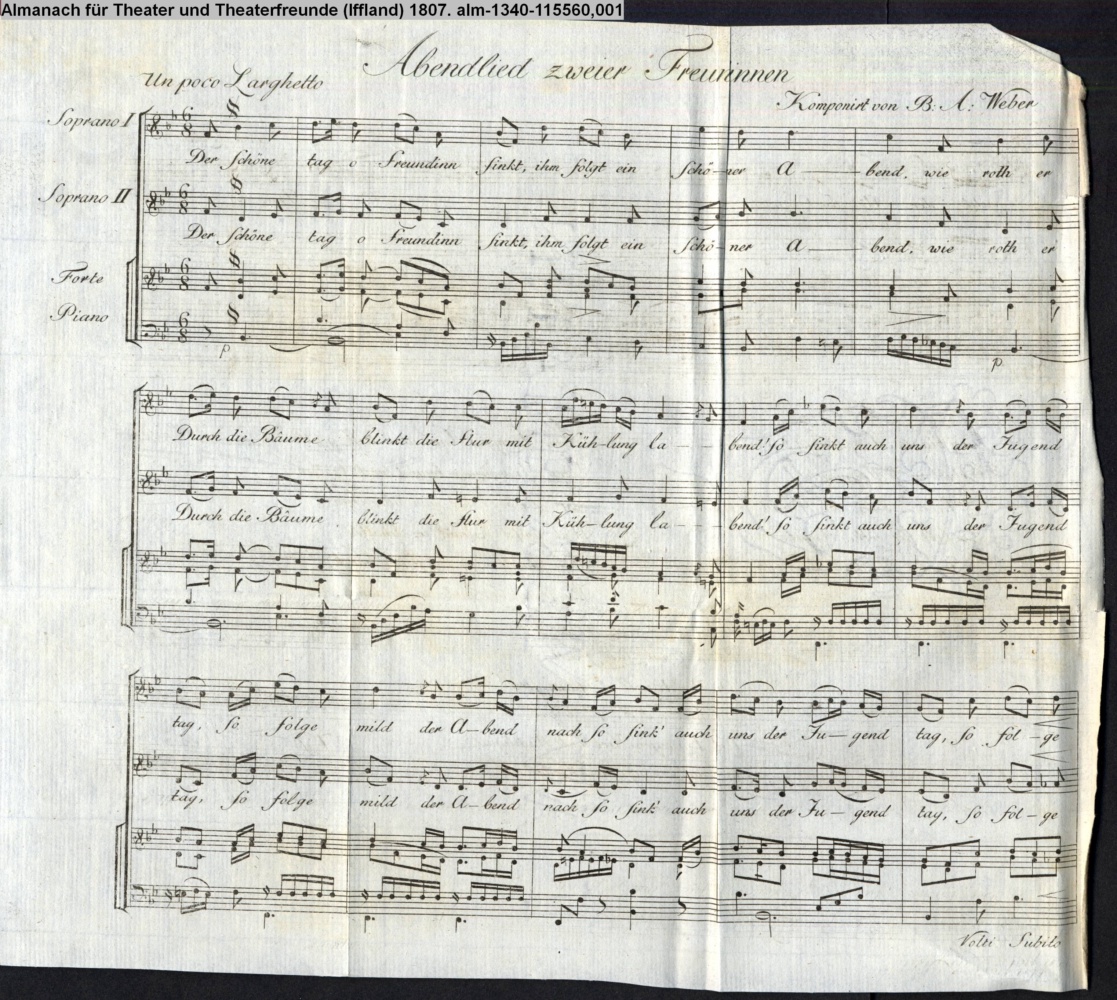 Almanach für Theater und Theaterfreunde (Iffland) 1807. alm-1340-115560,001
Abendlied zweier Freundinnen
Un poco Larghetto
Komponirt von B: A: Weber
Soprano I
Der Schöne tag o Freundinn sinkt, ihm folgt ein Schö-ner A — bend, wie roth er
Soprano II
Der Schöne tag o Freundinn sinkt, ihm folgt ein schö-ner A — bend, wie roth er
Forte
Piano
p p
Durch die Bäume blinkt die Flur mit Küh-lung la - - bend! so sinkt auch uns der Jugend
Durch die Bäume blinkt die flur mit Küh-lung la - - bend! so sinkt auch uns der Jugend
tag, so folge mild der A-bend nach so sink' auch uns der Ju-gend tag, so fol-ge
tag, so folge mild der A-bend nach so sink' auch uns der Ju-gend tag, so fol-ge
Volti Subito